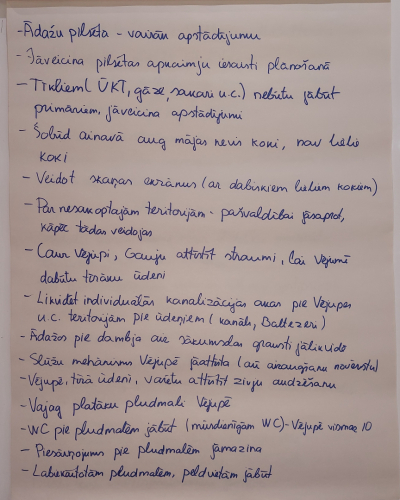 - Ādažu pilsēta - vairāk apstādījumu
- Jāveicina pilsētas apkaimju iesaisti plānošanā
- Tīkliem (ŪKT, gāze, sakari u.c.) nebūtu jābūt
primāriem, jāveicina apstādījumi
- Šobrīd ainavā aug mājas nevis koki, nav lielie
koki
- Veidot skaņas ekrānus (ar dabiskiem lieliem kokiem)
- Par nesakoptajām teritorijām - pašvaldībai jāsaprot,
kāpēc tādas veidojas
- Caur Vējupi, Gauju attīstīt straumi, lai Vējupē
dabūtu tīrāku ūdeni
- Likvidēt individuālās kanalizācijas akas pie Vējupes
u.c. teritorijām pie ūdeņiem (kanāli, Baltezeri)
- Ādažos pie dambja ar sākumskolu grausti jālikvidē
- Slūžu mehānisms Vējupē jāattīsta (arī aizaugšanu novērstu)
- Vējupē, tīrā ūdenī, varētu attīstīt zivju audzēšanu
- Vajag platāku pludmali Vējupē
- WC pie pludmalēm jābūt (mūsdienīgām WC) - Vējupē vismaz 10
- Piesārņojums pie pludmalēm jāmazina
- Labiekārtotām pludmalēm, peldvietām jābūt